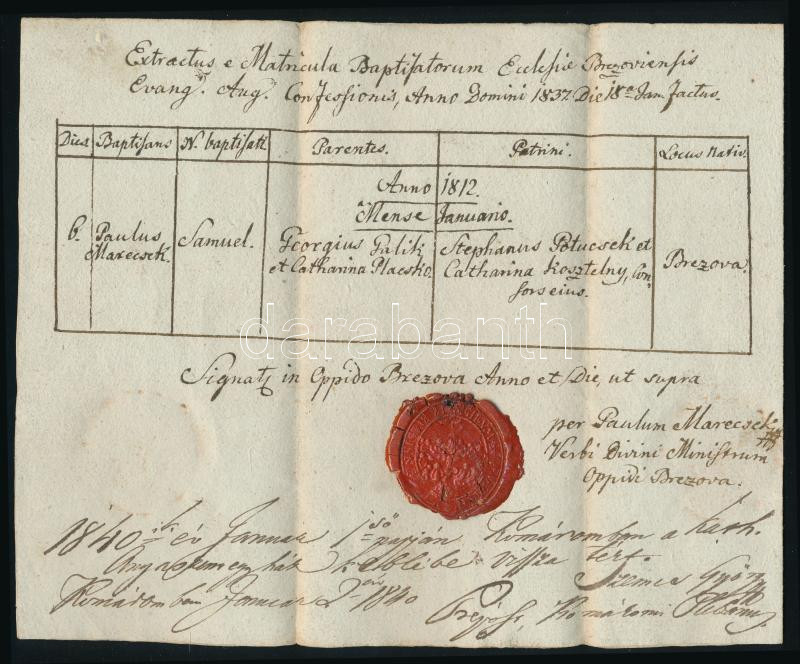 Extractus e Matricula Baptisatorum Ecclesiæ Brezoviensis
Evang. Aug. Confessionis, Anno Domini 1837 Die 18a Jan. factus.
Dies Baptisans N. baptisati Parentes. Patrini. Locus Nativ.
Anno 1812.
Mense Januario.
6. Paulus Marecsek. Samuel. Georgius Galik et Catharina Placsko. Stephanus Potucsek et Catharina Kosztelny, Consors eius. Brezova.
darabanth
Signat. in Oppido Brezova Anno et Die, ut supra
per Paulum Marecsek
Verbi Divini Ministrum
Oppidi Brezova.
1840 ik év Januar 1 ső napján Komáromban a kath.
Anyaszentegyház keblibe vissza tért.
Szemes György
Komáromban Januar 2 án 1840
Prépost, Komáromi Plébános